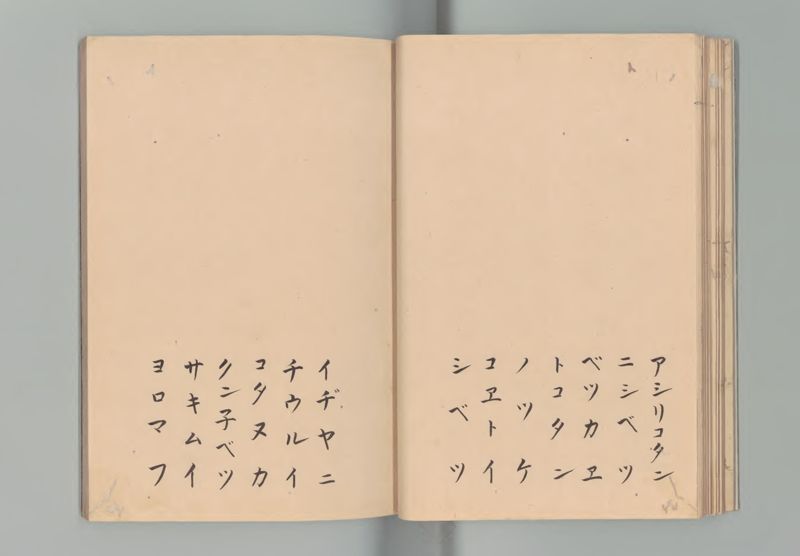 アシリコタン
ニシベツ
ベツカヱ
トコタン
ノツケ
コヱトイ
シベツ
イヂヤニ
チウルイ
コタヌカ
クン子ベツ
サキムイ
ヨロマフ